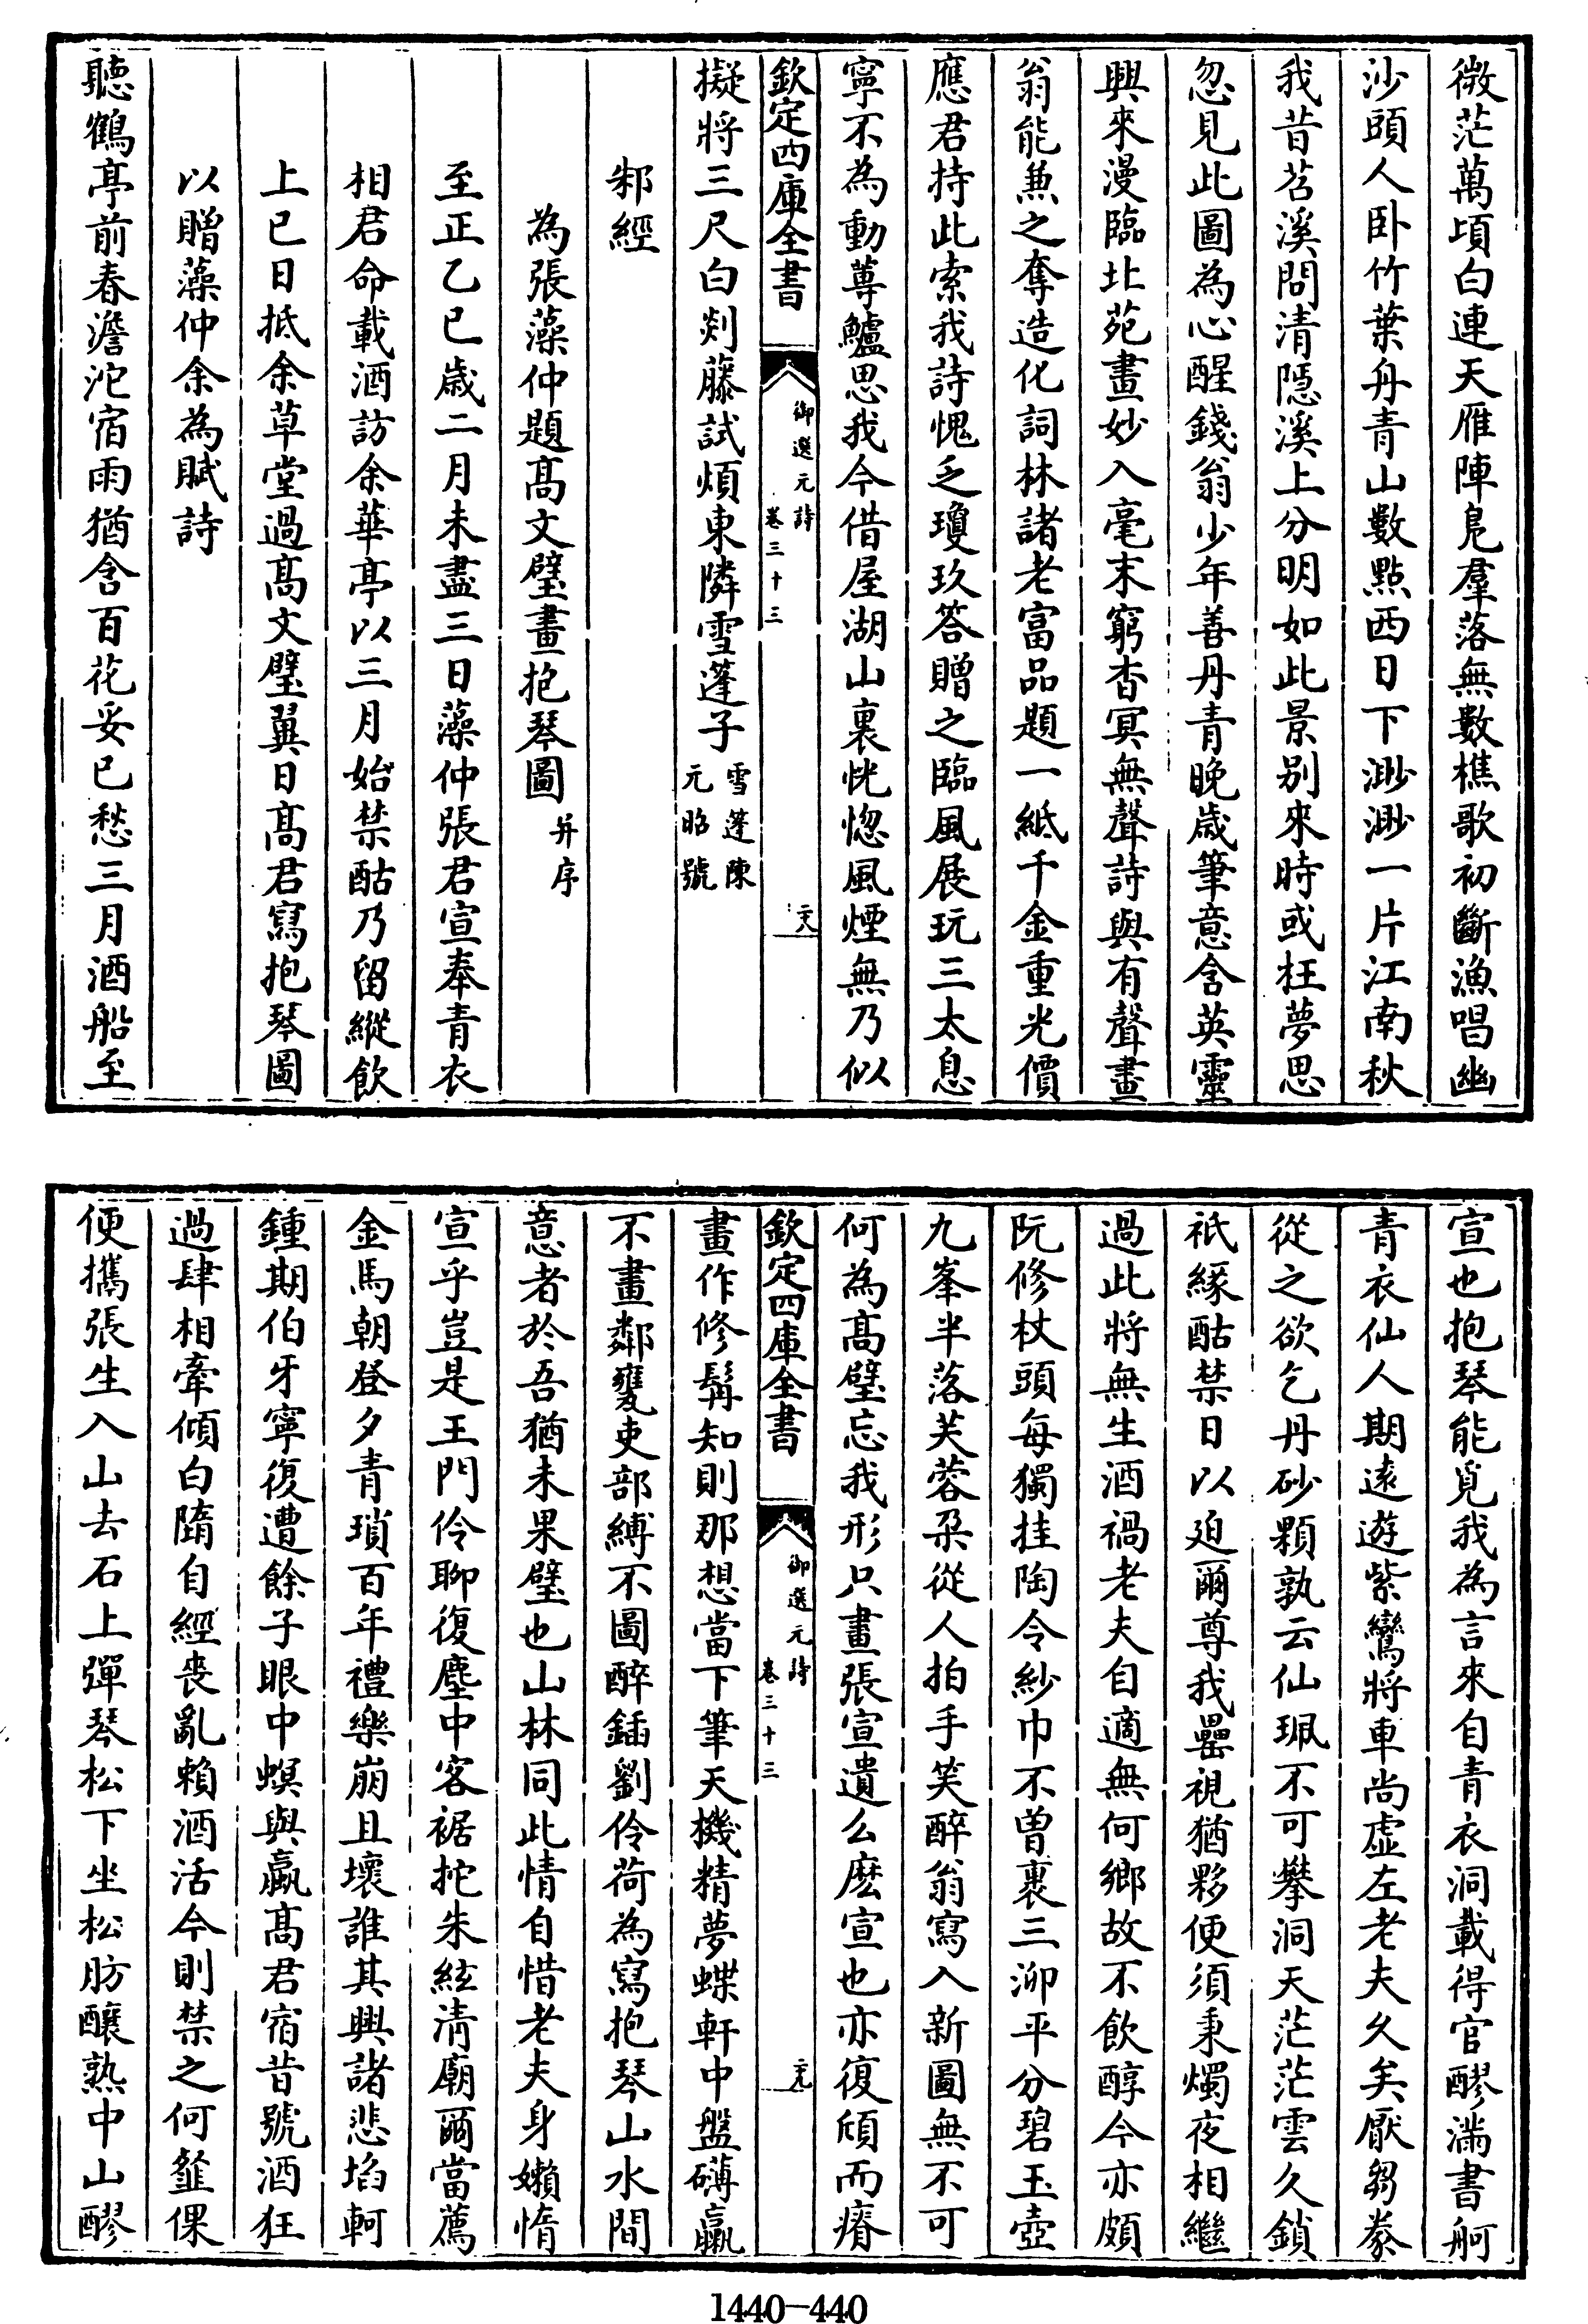 微茫萬頃白連天雁陣鳬羣落無數樵歌初斷漁唱幽
沙頭人卧竹葉舟青山數點西日下渺渺一片江南秋
我昔苕溪問清隱溪上分明如此景别來時或枉夢思
忽見此圖為心醒錢翁少年善丹青晚歲筆意含英靈
興來漫臨北苑畫妙入毫末窮杳冥無聲詩與有聲畫
翁能兼之奪造化詞林諸老富品題一紙千金重光價
應君持此索我詩愧乏瓊玖答贈之臨風展玩三太息
寧不為動蓴鱸思我今借屋湖山裏恍惚風煙無乃似
欽定四庫全書
御選元詩
卷三十三
二十八
擬將三尺白剡藤試煩東隣雪蓬子雪蓬陳元昭號
邾經
為張藻仲題高文璧畫抱琴圖并序
至正乙巳歲二月未盡三日藻仲張君宣奉青衣
相君命載酒訪余華亭以三月始禁酤乃留縱飲
上巳日抵余草堂過高文璧翼日高君寫抱琴圖
以贈藻仲余為賦詩
聽鶴亭前春澹沱宿雨猶含百花妥已愁三月酒船至
宣也抱琴能覓我為言來自青衣洞載得官醪滿書舸
青衣仙人期遠遊紫鸞將車尚虚左老夫久矣厭芻豢
從之欲乞丹砂顆孰云仙珮不可攀洞天茫茫雲久鎖
祇緣酤禁日以迫爾尊我罍視猶夥便須秉燭夜相繼
過此將無生酒禍老夫自適無何鄉故不飲醇今亦頗
阮修杖頭每獨挂陶令紗巾不曾裹三泖平分碧玉壺
九峯半落芙蓉朶從人拍手笑醉翁寫入新圖無不可
何為高璧忘我形只畫張宣遺么麽宣也亦復頎而瘠
欽定四庫全書
御選元詩
卷三十三
二十九
畫作修髯知則那想當下筆天機精夢蝶軒中盤礴臝
不畫鄰甕吏部縛不圖醉鍤劉伶荷為寫抱琴山水間
意者於吾猶未果璧也山林同此情自惜老夫身嬾惰
宣乎豈是王門伶聊復塵中客裾拕朱絃清廟爾當薦
金馬朝登夕青瑣百年禮樂崩且壞誰其興諸悲埳軻
鍾期伯牙寧復遭餘子眼中螟與蠃高君宿昔號酒狂
過肆相牽傾白墮自經丧亂賴酒活今則禁之何韰倮
便攜張生入山去石上彈琴松下坐松肪釀熟中山醪
1440—440